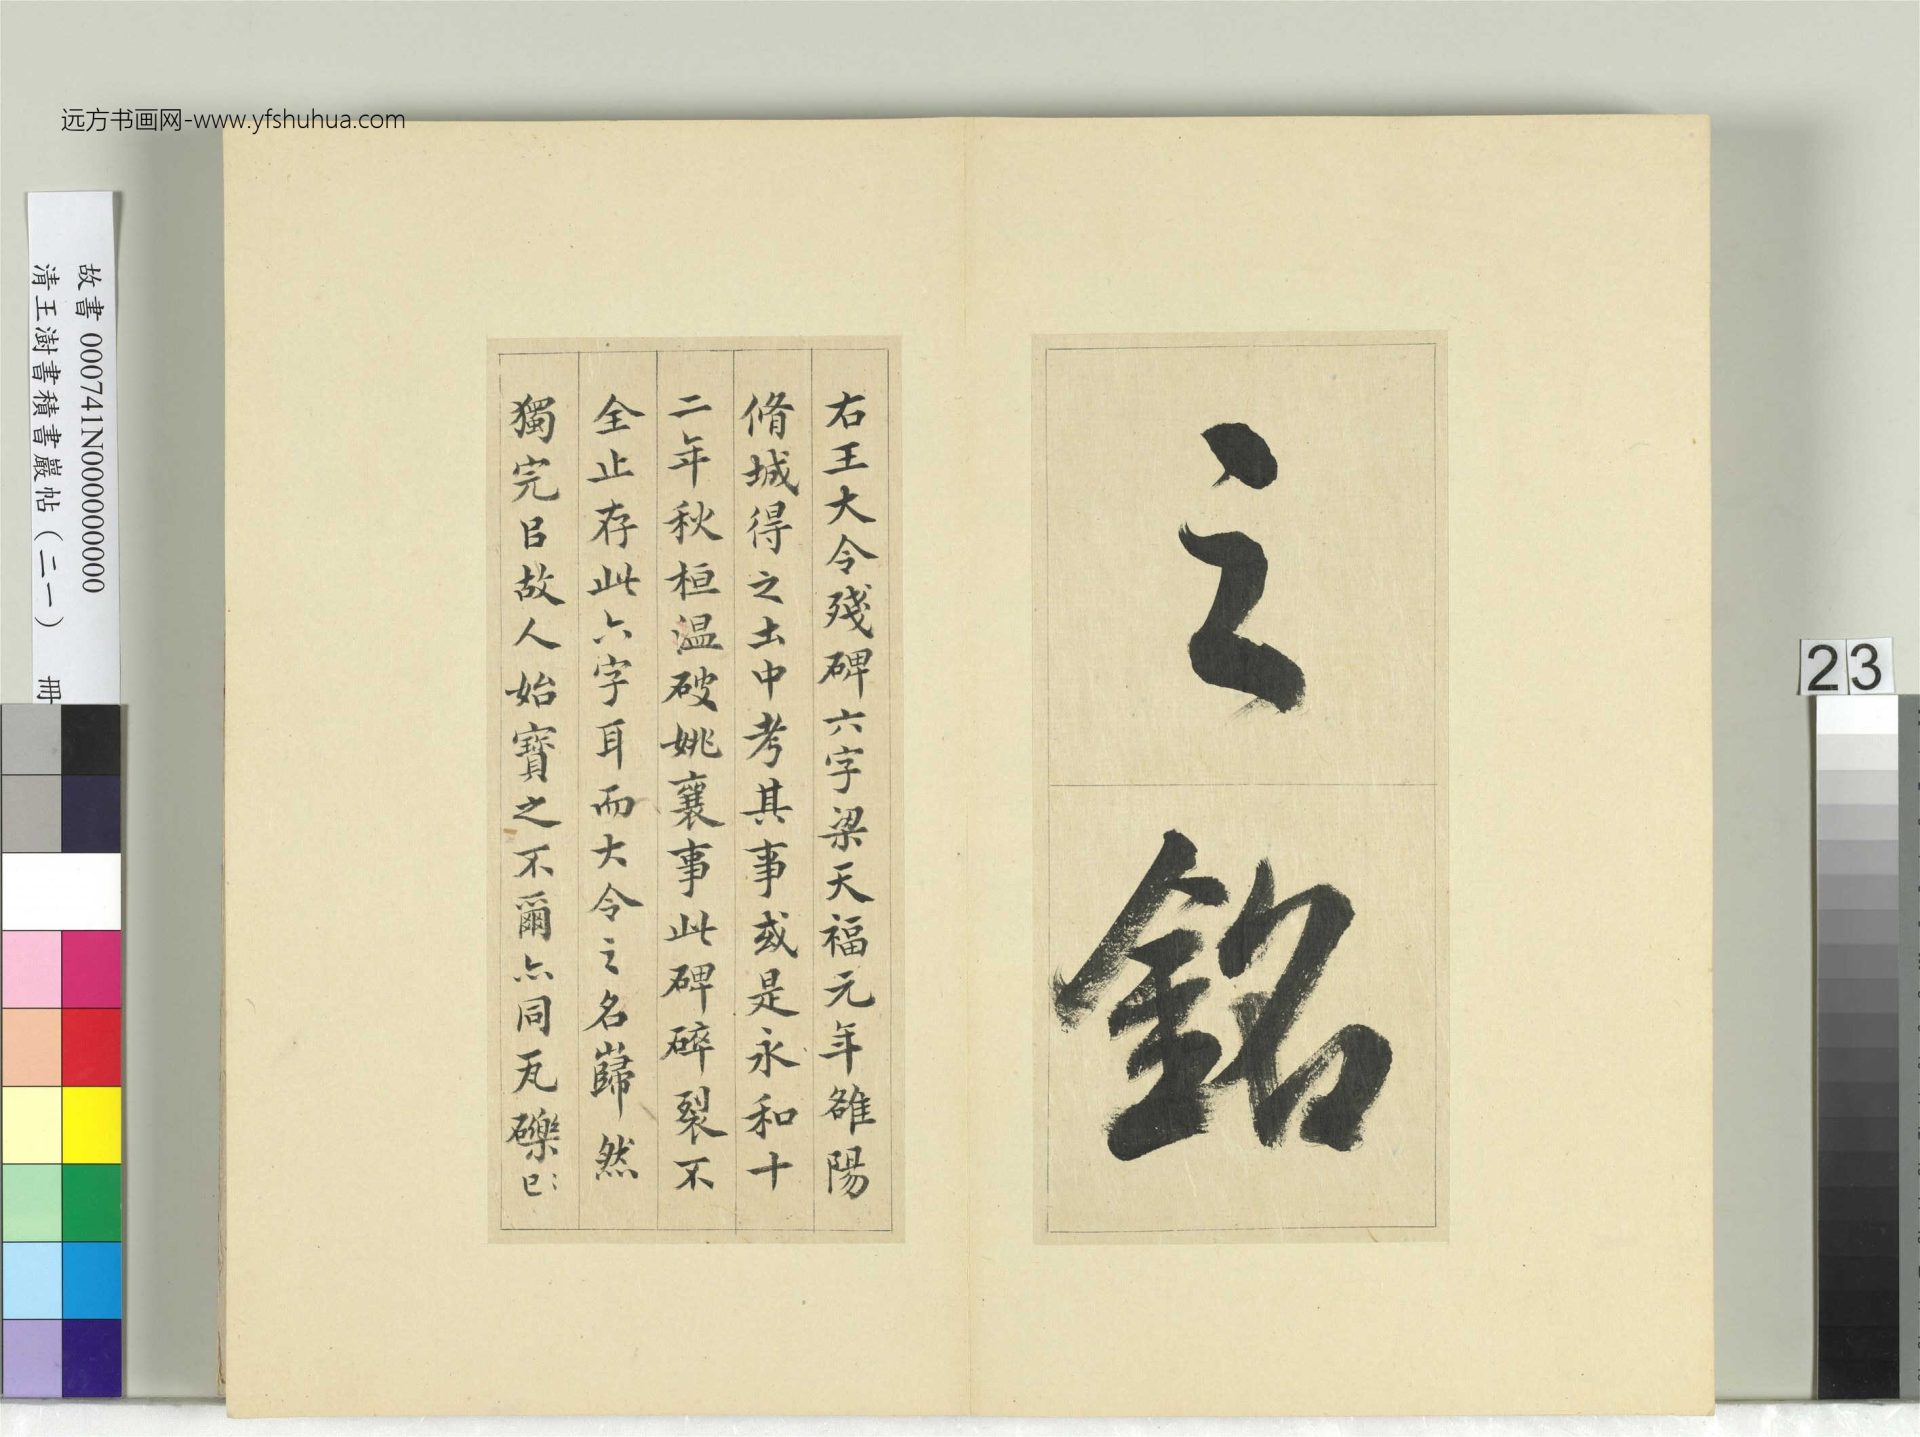 远方书画网-www.yfshuhua.com
之銘
右王大令殘碑六字梁天福元年雒陽
脩城得之土中考其事或是永和十
二年秋桓温破姚襄事此碑碎裂不
全止存此六字耳而大令之名巋然
獨完㠯故人始寶之不爾亦同瓦礫已
故書000741N000000000
清王澍書積書巖帖(二一) 冊
23